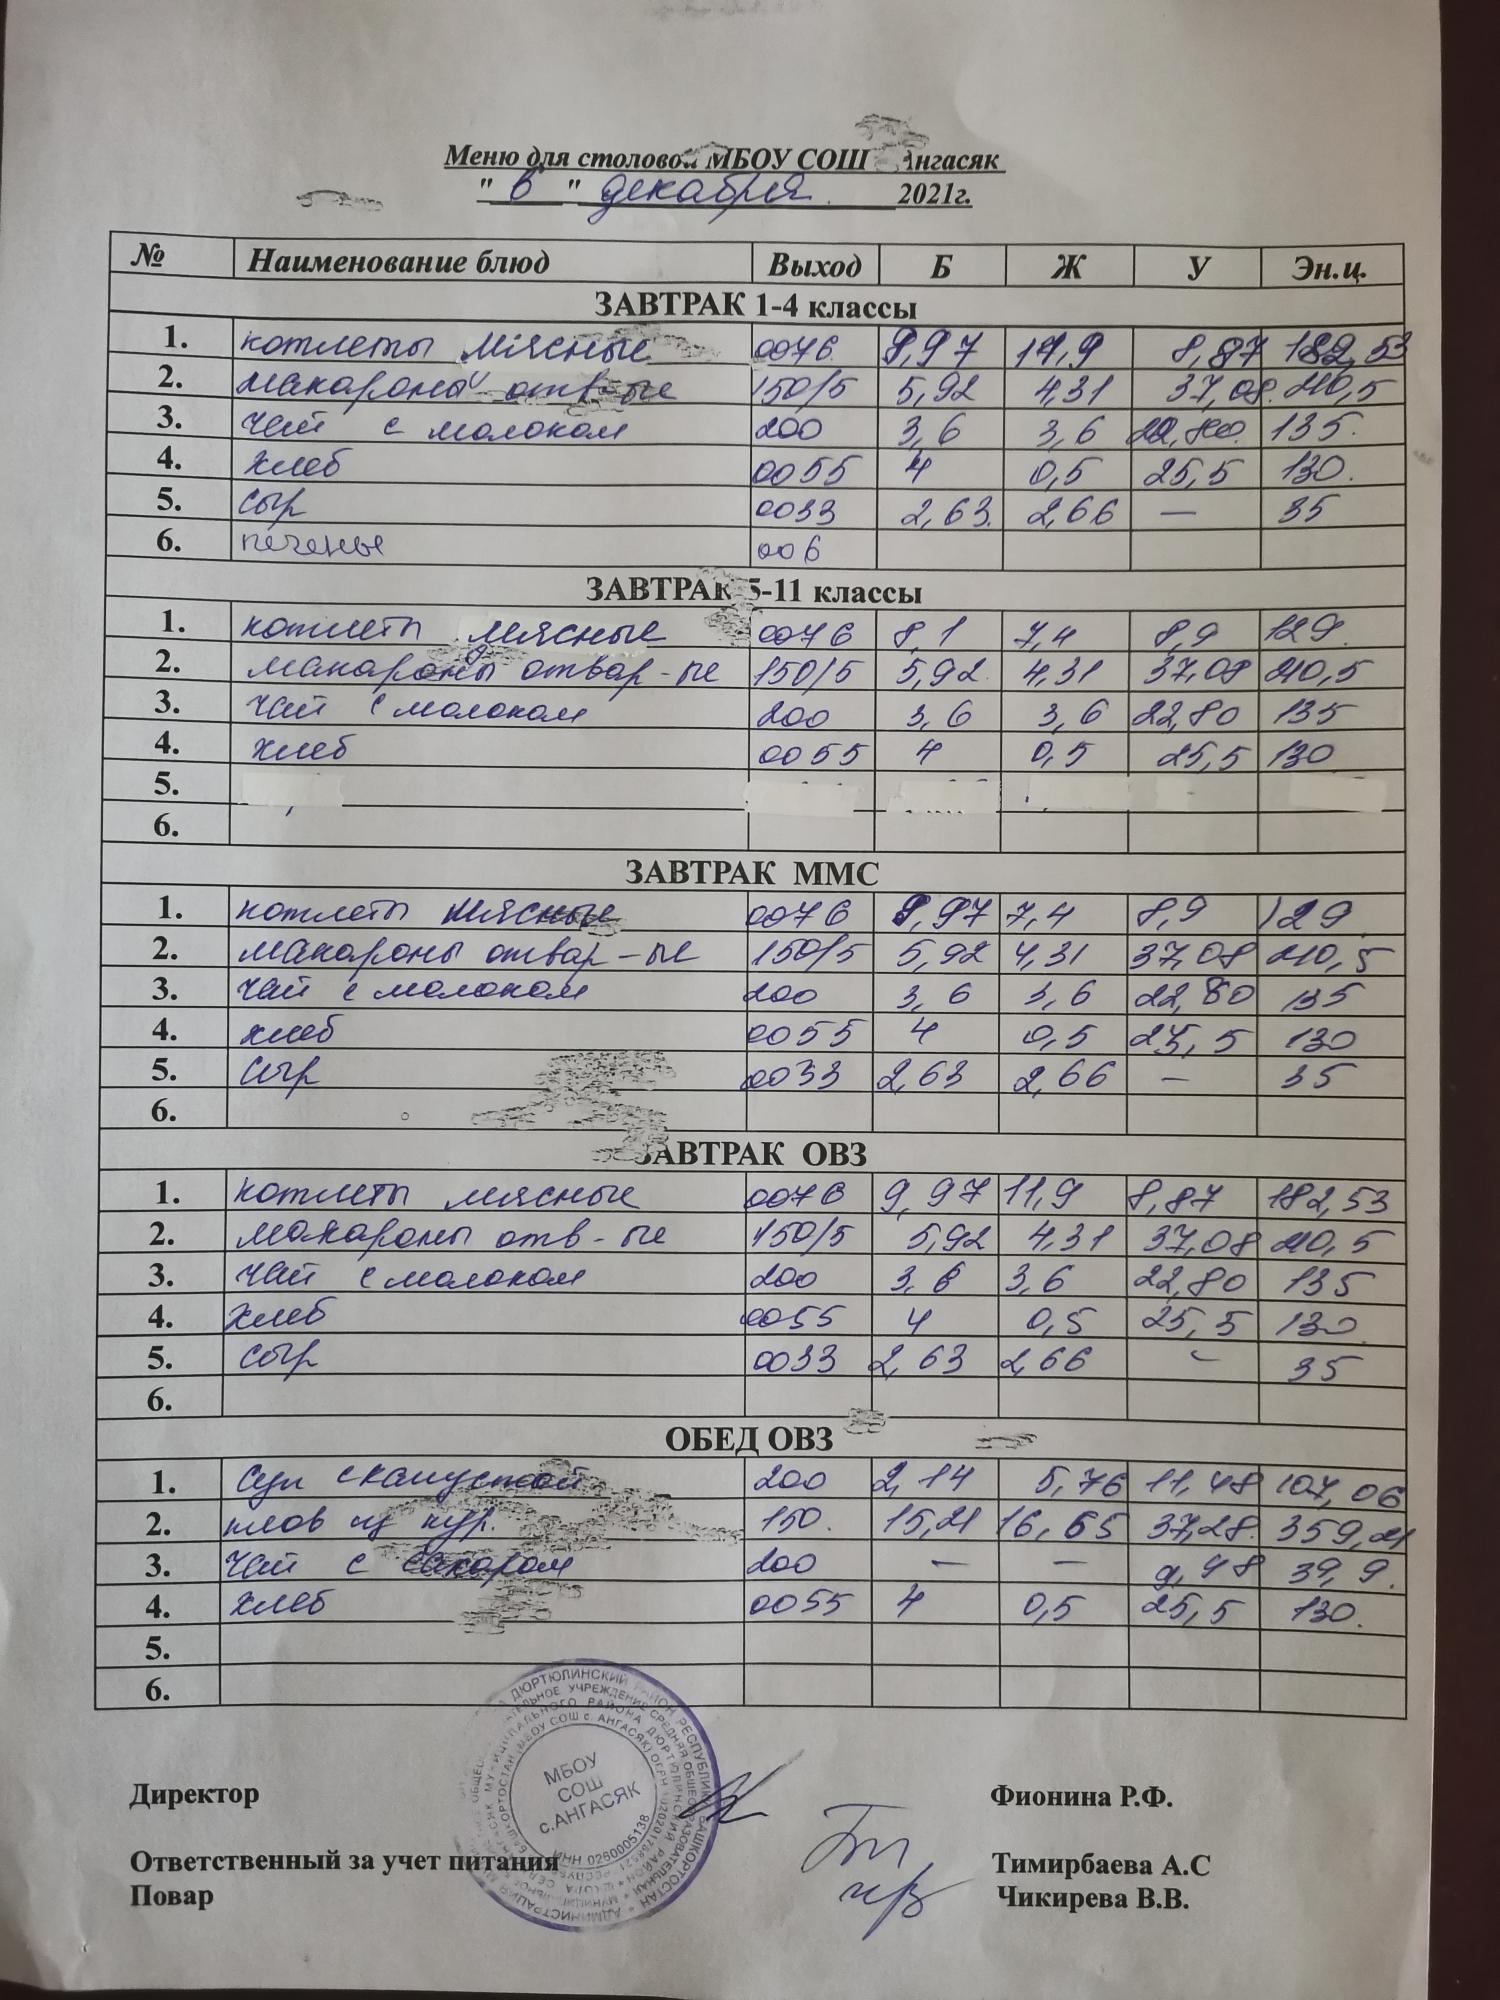 Меню для столовой МБОУ СОШ Ангасяк
" 6 " декабря 2021г.
№ Наименование блюд Выход Б Ж У Эн.ц.
ЗАВТРАК 1-4 классы
1. котлеты мясные 0076 9,97 11,9 8,87 182,53
2. макароны отв-ые 150/5 5,92 4,31 37,08 210,5
3. чай с молоком 200 3,6 3,6 22,80 135.
4. хлеб 0055 4 0,5 25,5 130.
5. сыр 0033 2,63 2,66 — 35
6. печенье 006
ЗАВТРАК 5-11 классы
1. котлеты мясные 0076 8,1 7,4 8,9 129.
2. макароны отвар-ые 150/5 5,92 4,31 37,08 210,5
3. чай с молоком 200 3,6 3,6 22,80 135
4. хлеб 0055 4 0,5 25,5 130
5.
6.
ЗАВТРАК ММС
1. котлеты мясные 0076 9,97 7,4 8,9 129
2. макароны отвар-ые 150/5 5,92 4,31 37,08 210,5
3. чай с молоком 200 3,6 3,6 22,80 135
4. хлеб 0055 4 0,5 25,5 130
5. сыр 0033 2,63 2,66 — 35
6.
ЗАВТРАК ОВЗ
1. котлеты мясные 0076 9,97 11,9 8,87 182,53
2. макароны отв-ые 150/5 5,92 4,31 37,08 210,5
3. чай с молоком 200 3,6 3,6 22,80 135
4. хлеб 0055 4 0,5 25,5 130
5. сыр 0033 2,63 2,66 - 35
6.
ОБЕД ОВЗ
1. Суп с капустой 200 2,14 5,76 11,48 107,06
2. плов из кур. 150. 15,21 16,65 37,28. 359,21
3. чай с сахаром 200 — — 9,48 39,9.
4. хлеб 0055 4 0,5 25,5 130.
5.
6.
МБОУ
СОШ
с.АНГАСЯК
ИНН 0260005138
Директор Фионина Р.Ф.
Ответственный за учет питания Тимирбаева А.С
Повар Чикирева В.В.